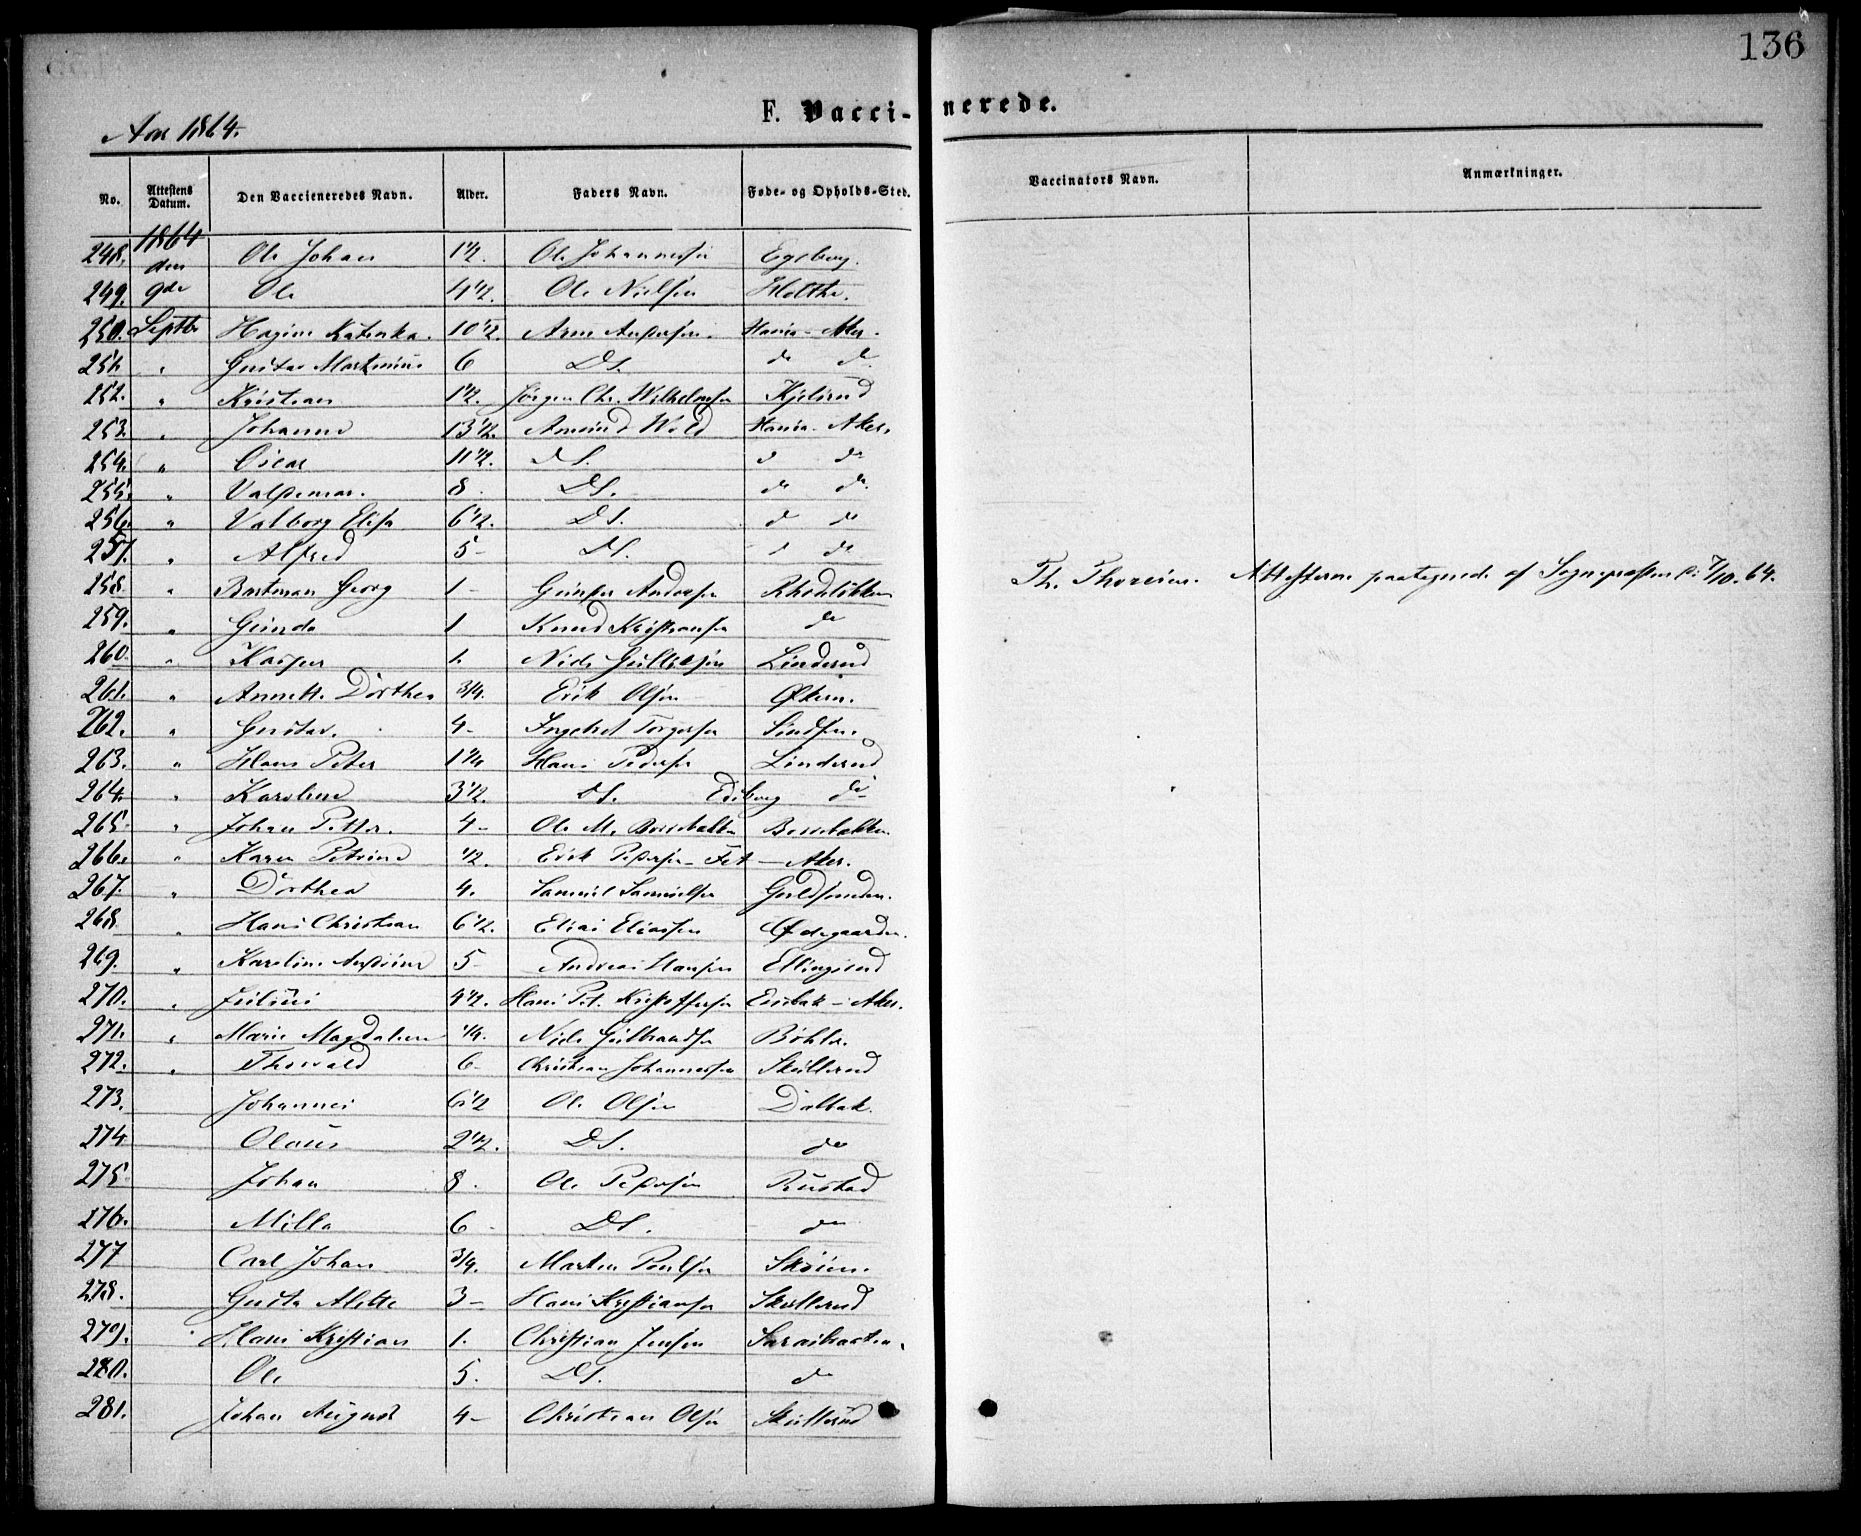 136
F. Vaccinerede.
Aar 1864.
No. Attestens Datum. Den Vaccieneredes Navn. Alder. Faders Navn. Føde- og Opholds-Sted. Vaccinators Navn. Anmærkninger.
248. 1864 den Ole Johan 1 1/2. Ole Johannesen Egeberg.
249. 9de Ole 4 1/2. Ole Nielsen Holthe.
250. Septbr Hagine Katinka. 10 1/2. Arne Andersen. Hania - Aker.
251. " Gustav Martinius 6 DS. do do
252. " Kristian 1 1/2. Jørgen Chr. Wilhelmsen Kjelsrud
253. " Johanne 13 1/2. Amund Wold Hania - Aker.
254. " Oscar 11 1/2. DS. do do
255. " Valdemar. 8 DS. do do
256. " Valborg Elisa 6 1/2. DS. do do
257. " Alfred 5 - DS. do do
258. " Bertman Georg 1 - Gunder Andersen Rhodeløkken Th. Thoresen. Attesterne paategnede af Sognepresten d: 7/10. 64.
259. " Gunda 1 Knud Kristiansen do
260. " Kasper 1. Niels Gulliksen Linderud
261. " Annette Dorthea 3/4. Erik Olsen Økern.
262. " Gustav. 4 - Ingebret Torgersen Sindsen.
263. " Hans Peter 1 1/4 Hans Pedersen Linderud
264. " Karoline 3 1/2. DS. Edsberg do
265. " Johan Petter. 4 - Ole M. Bersebakken Bersebakken.
266. " Karen Petrine 1/2. Erik Pedersen - Fet - Aker.
267. " Dorthea 4. Samuel Samuelsen Guldsmeden.
268. " Hans Christian 6 1/2. Elias Eliassen Ødegaarden.
269. " Karoline Andrine 5 - Andreas Hansen Ellingsrud
270. " Julius 4 1/2. Hans Pet. Kristoffersen Ensebak - Aker.
271. " Marie Magdalene 1/4. Niels Gulbrandsen Bøhler.
272. " Thorvald 6 - Christian Johannessen Skullerud
273. Johannes 6 1/2 Ole Olsen Dalbak.
274 Olaus 2 1/2. DS. do
275. Johan 8. Ole Pedersen Rustad
276. Milla 6 - DS. do
277 Carl Johan 3/4. Martin Poulsen Skøien.
278. Gusta Alette 3 - Hans Kristiansen Skullerud
279. Hans Kristian 1. Christian Jensen Sarabraaten.
280. Ole 5. DS. do
281. Johan August 4 - Christian Olsen Skullerud